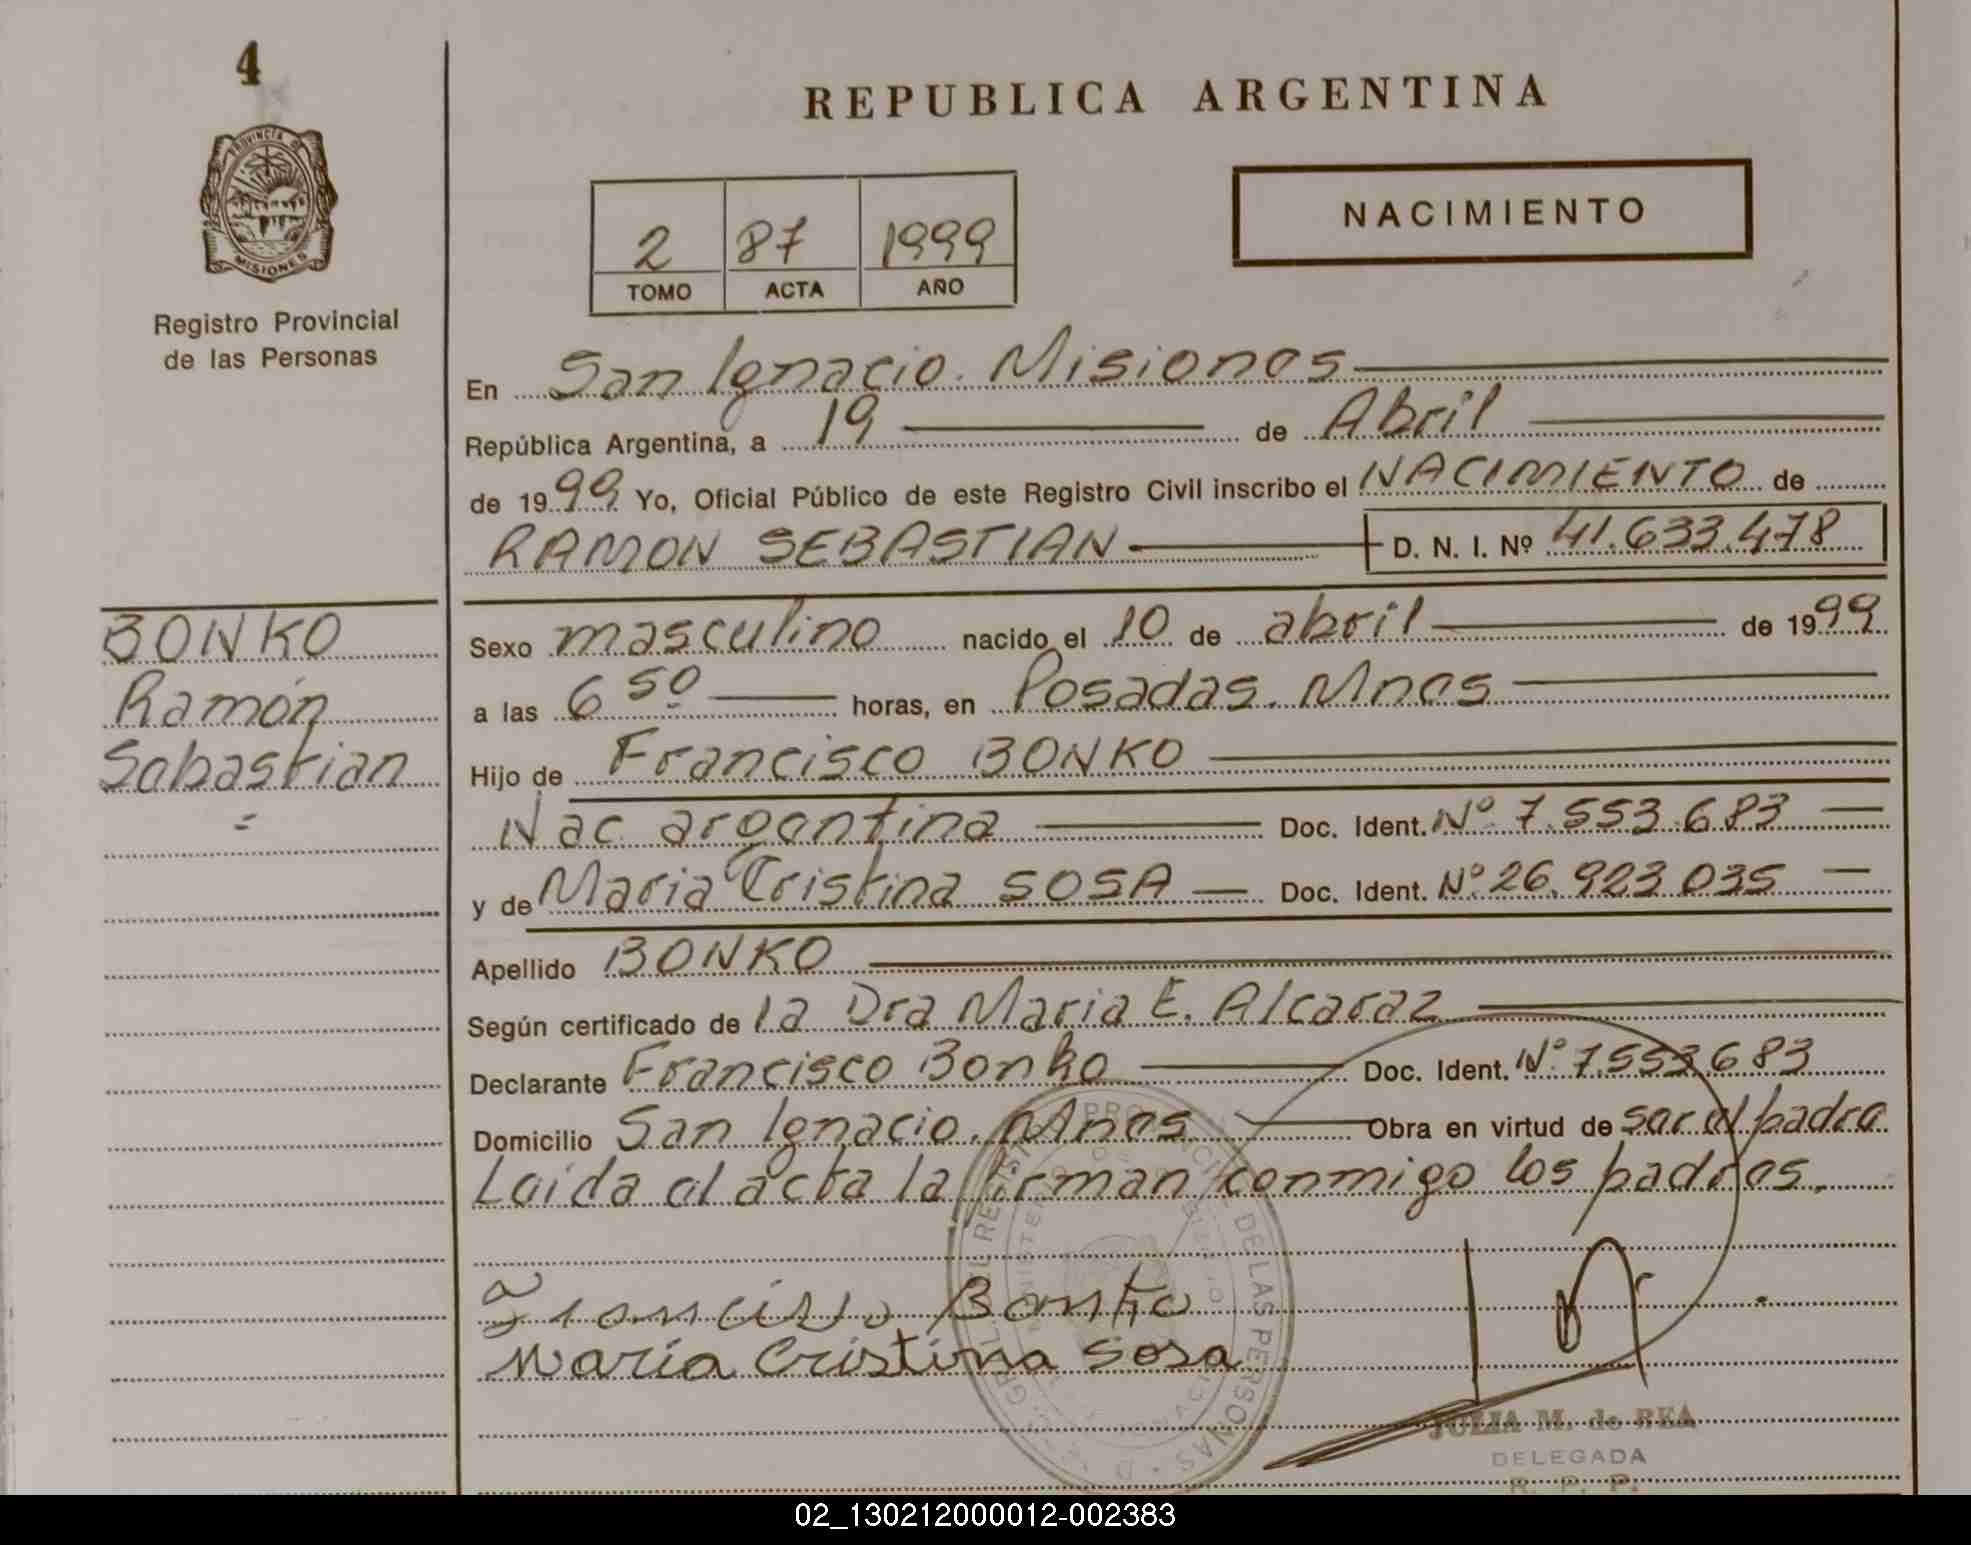 4
PROVINCIA DE
MISIONES
Registro Provincial
de las Personas
REPUBLICA ARGENTINA
NACIMIENTO
2 87 1999
TOMO ACTA AÑO
En San Ignacio. Misiones
República Argentina, a 19 de Abril
de 1999 Yo, Oficial Público de este Registro Civil inscribo el NACIMIENTO de
RAMON SEBASTIAN D. N. I. Nº 41.633.478
BONKO
Ramón
Sebastian
Sexo masculino nacido el 10 de abril de 1999
a las 6 50 horas, en Posadas. Mnes
Hijo de Francisco BONKO
Nac argentina Doc. Ident. Nº 7.553.683
y de Maria Cristina SOSA Doc. Ident. Nº 26.923.035
Apellido BONKO
Según certificado de la Dra Maria E. Alcaraz
Declarante Francisco Bonko Doc. Ident. Nº 7.553.683
Domicilio San Ignacio. Mnes Obra en virtud de ser el padre
Leída el acta la firman conmigo los padres.
Francisco Bonko
Maria Cristina Sosa
JULIA M. de REA
DELEGADA
R. P. P.
02_130212000012-002383